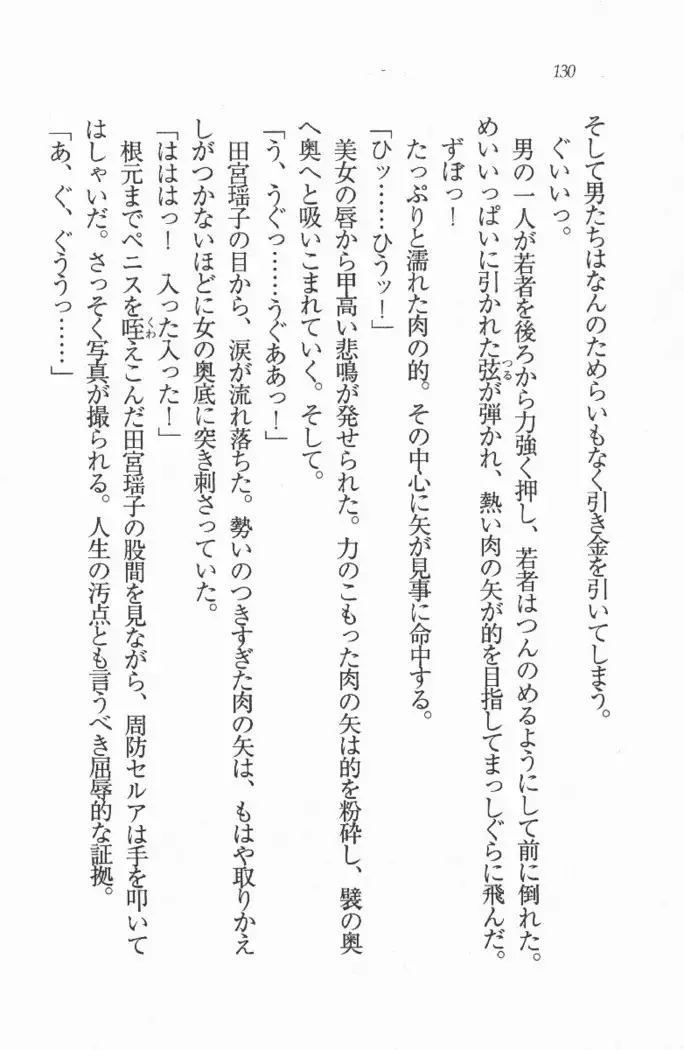 130
そして男たちはなんのためらいもなく引き金を引いてしまう。
ぐいいっ。
男の一人が若者を後ろから力強く押し、若者はつんのめるようにして前に倒れた。
めいいっぱいに引かれた弦が弾かれ、熱い肉の矢が的を目指してまっしぐらに飛んだ。
つる
ずぼっ！
たっぷりと濡れた肉の的。その中心に矢が見事に命中する。
「ひッ……ひうッ！」
美女の唇から甲高い悲鳴が発せられた。力のこもった肉の矢は的を粉砕し、襞の奥
へ奥へと吸いこまれていく。そして。
「う、うぐっ……うぐああっ！」
田宮瑶子の目から、涙が流れ落ちた。勢いのつきすぎた肉の矢は、もはや取りかえ
しがつかないほどに女の奥底に突き刺さっていた。
「はははっ！　入った入った！」
根元までペニスを咥えこんだ田宮瑶子の股間を見ながら、周防セルアは手を叩いて
くわ
はしゃいだ。さっそく写真が撮られる。人生の汚点とも言うべき屈辱的な証拠。
「あ、ぐ、ぐううっ……」